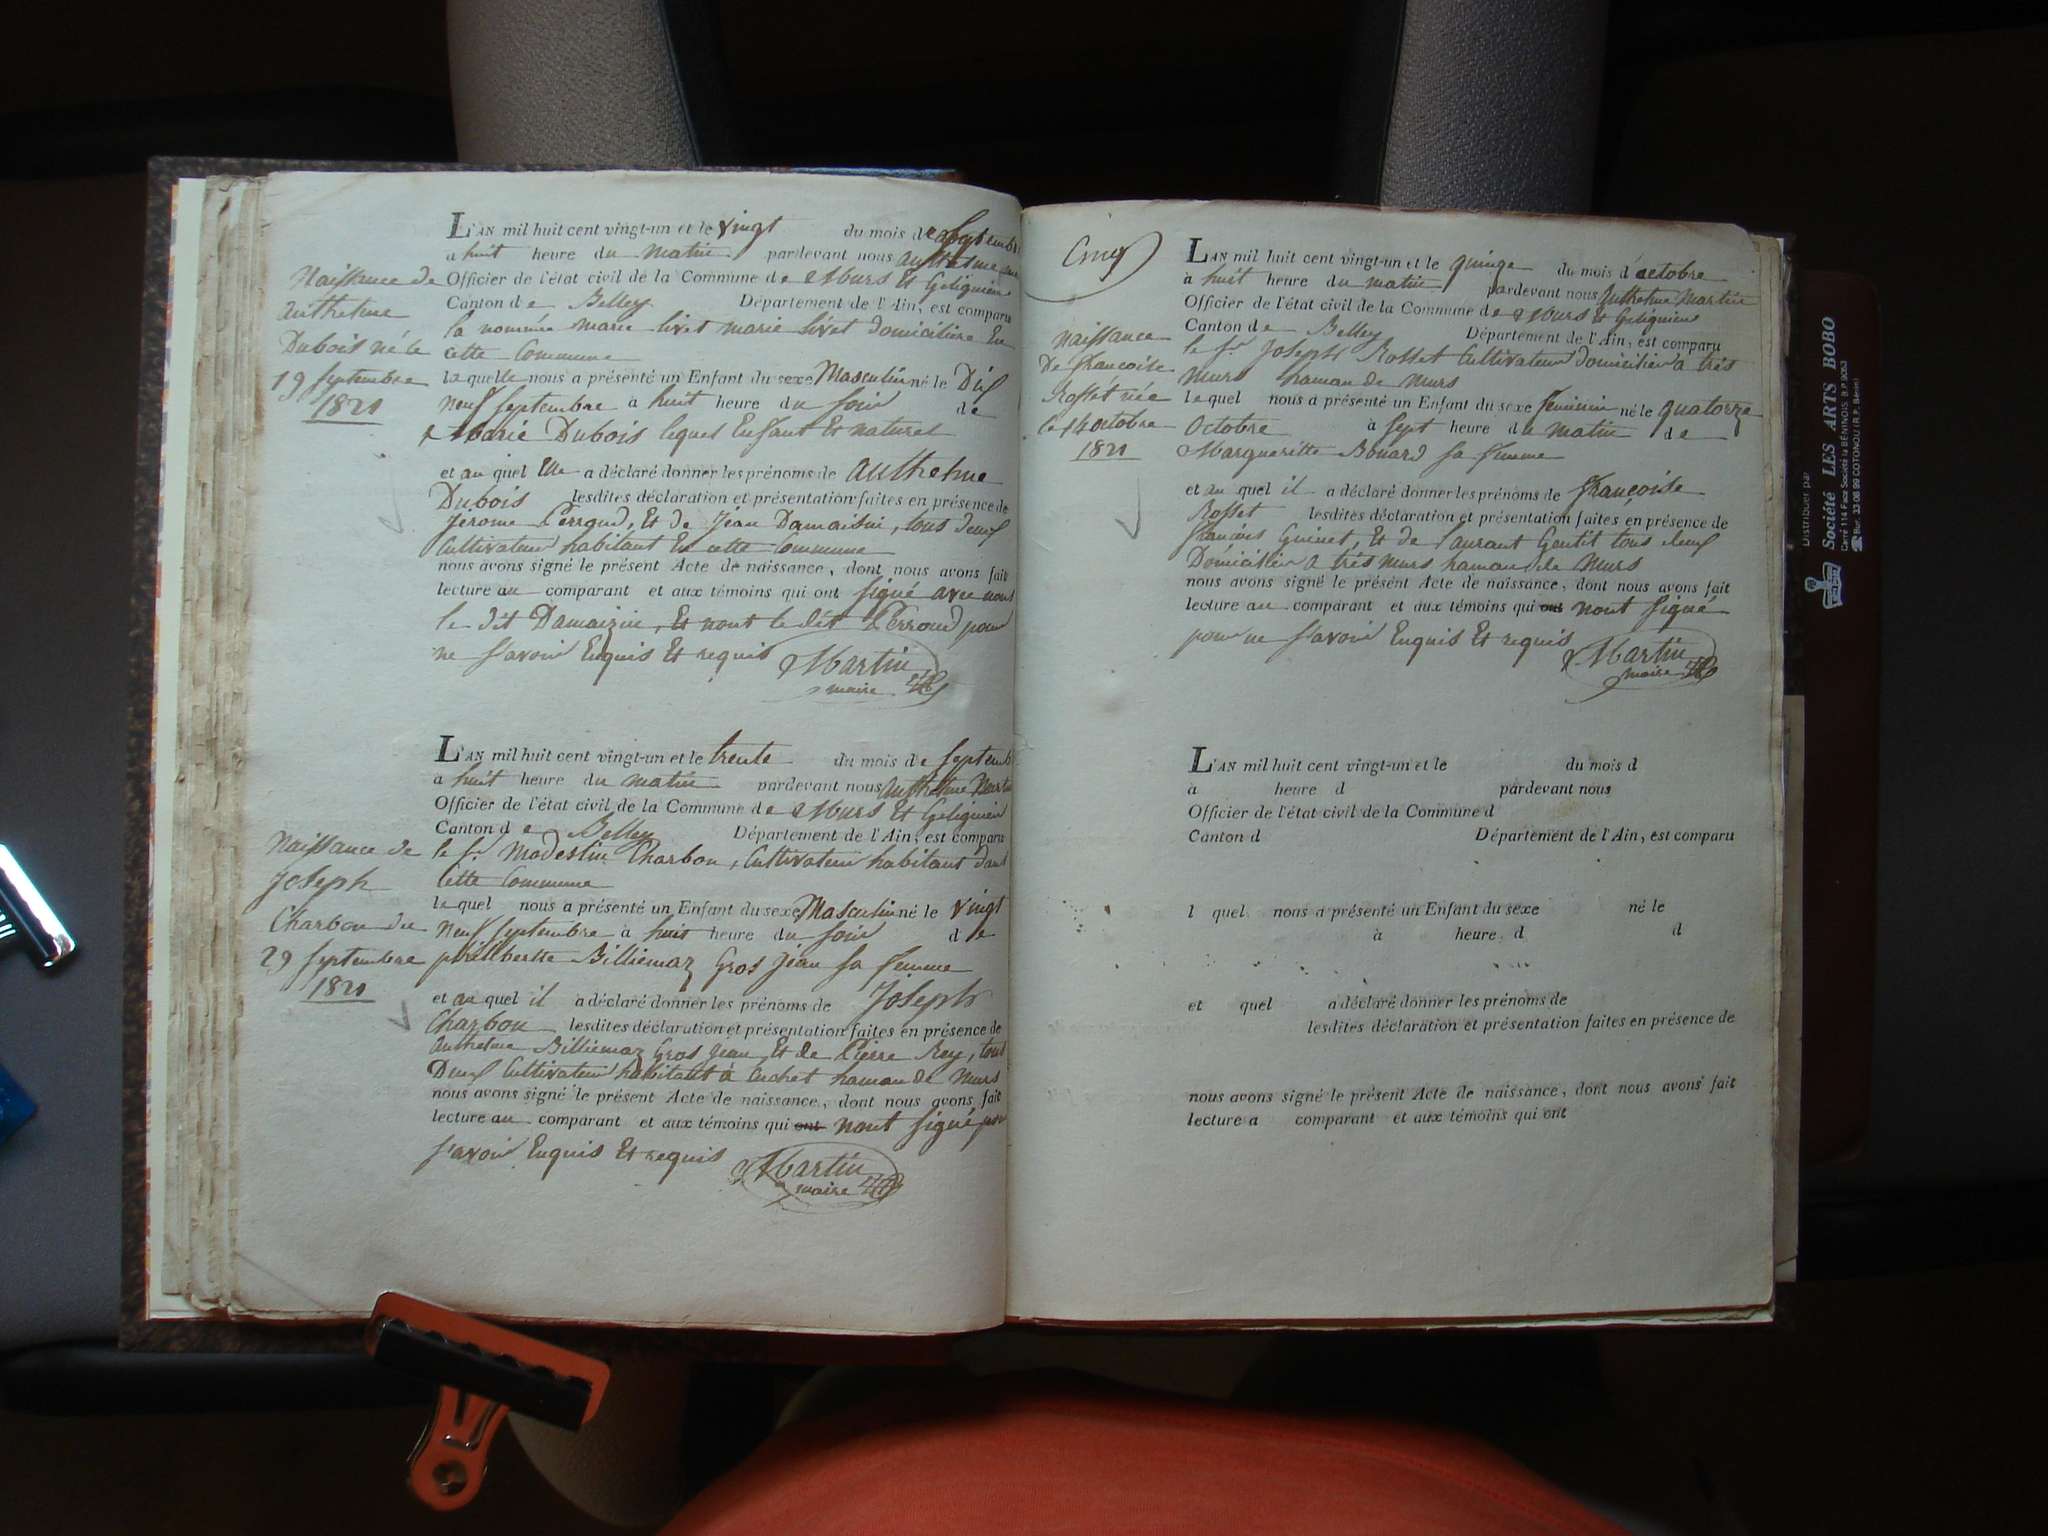 L'AN mil huit cent vingt-un et le vingt du mois de septembre
a huit heure du matin pardevant nous
Officier de l'état civil de la Commune de Murs et Gelignieu
Canton de Belley Département de l'Ain, est comparu
la nommée marie livet marie livet domiciliere En
cette Commune
laquelle nous a présenté un Enfant du sexe Masculin né le Dix
neuf septembre à huit heure du soir de
Marie Dubois lequel Enfant Et naturel
et au quel Elle a déclaré donner les prénoms de anthelme
Dubois lesdites déclaration et présentation faites en présence de
Jerome Perroud, Et de Jean Damaisin, tous deux
Cultivateur habitant En cette Commune
nous avons signé le présent Acte de naissance, dont nous avons fait
lecture au comparant et aux témoins qui ont signé avec nous
le dit Damaizin, Et nont le dit Perroud pour
ne savoir Enquis Et requis Martin
maire
Naissance de
anthelme
Dubois né le
19 septembre
1821
L'AN mil huit cent vingt-un et le trente du mois de septemb
a huit heure du matin pardevant nous anthelme Martin
Officier de l'état civil de la Commune de Murs Et Gelignieu
Canton de Belley Département de l'Ain, est comparu
le Sr. Modestin Charbon, Cultivateur habitant dans
Cette Commune
lequel nous a présenté un Enfant du sexe Masculin né le vingt
neuf septembre à huit heure du soir de
philiberte Billiemaz Gros jean sa femme
et au quel il a déclaré donner les prénoms de Joseph
Charbon lesdites déclaration et présentation faites en présence de
anthelme Billiemaz Gros jean Et de Pierre Rey, tous
Deux Cultivateur habitant à hamau de Murs
nous avons signé le présent Acte de naissance, dont nous avons fait
lecture au comparant et aux témoins qui ont nont signé pour
savoir Enquis Et requis Martin
maire
Naissance de
Joseph
Charbon du
29 septembre
1821
Cinq
L'AN mil huit cent vingt-un et le quinze du mois d'octobre
à huit heure du matin pardevant nous Anthelme Martin
Officier de l'état civil de la Commune de Murs Et Gelignieu
Canton de Belley Département de l'Ain, est comparu
le Sr. Joseph Rosset Cultivateur domicilier a trés
Murs hamau de Murs
lequel nous a présenté un Enfant du sexe feminin né le quatorze
Octobre à sept heure du matin de
Margueritte Bouard sa femme
et au quel il a déclaré donner les prénoms de françoise
Rosset lesdites déclaration et présentation faites en présence de
françois Guinet, Et de laurant Gentit tous deux
Domicilier a trés murs hamau de Murs
nous avons signé le présent Acte de naissance, dont nous avons fait
lecture au comparant et aux témoins qui ont nont signé
pour ne savoir Enquis Et requis Martin
maire
naissance
De francoise
Rosset née
le 14 octobre
1821
L'AN mil huit cent vingt-un et le du mois d
à heure d pardevant nous
Officier de l'état civil de la Commune d
Canton d Département de l'Ain, est comparu
l quel nous a présenté un Enfant du sexe né le
à heure d d
et quel a déclaré donner les prénoms de
lesdites déclaration et présentation faites en présence de
nous avons signé le présent Acte de naissance, dont nous avons fait
lecture a comparant et aux témoins qui ont
Distribuer par
Société LES ARTS BOBO
Carré 114 Face Société la BENINOIS. B.P. 9053
Bur. 33 08 99 COTONOU (R.P. Bénin)